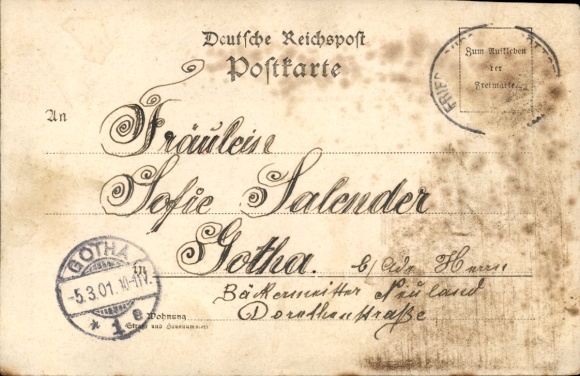 Deutsche Reichspost
Postkarte
Zum Aufkleben
der
Freimarke.
An
Fräulein
Sofie Salender
Gotha. b/ Herrn
Bäckermeister Neuland
Dorotheenstraße
GOTHA
-5.3.01. 10-11V.
* 1 e
Wohnung
Straße und Hausnummer